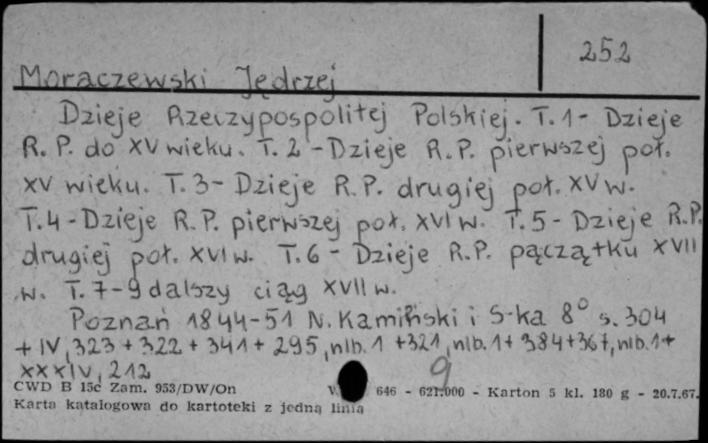 252
Moraczewski Jędrzej
Dzieje Rzeczypospolitej Polskiej. T.1- Dzieje
R.P. do XV wieku. T.2 - Dzieje R.P. pierwszej poł.
XV wieku. T.3- Dzieje R.P. drugiej poł. XV w.
T.4 - Dzieje R.P. pierwszej poł. XVI w. T.5 - Dzieje R.P.
drugiej poł. XVI w. T.6 - Dzieje R.P. pączątku XVII
w. T.7-9 dalszy ciąg XVII w.
Poznań 1844-51 N. Kamiński i S-ka 8° s. 304
+ IV, 323 + 322 + 341 + 295, nlb. 1 + 321, nlb. 1 + 384 + 367, nlb. 1 +
XXXIV, 212
9
CWD B 15c Zam. 953/DW/On 646 - 621.000 - Karton 5 kl. 180 g - 20.7.67.
Karta katalogowa do kartoteki z jedną linią